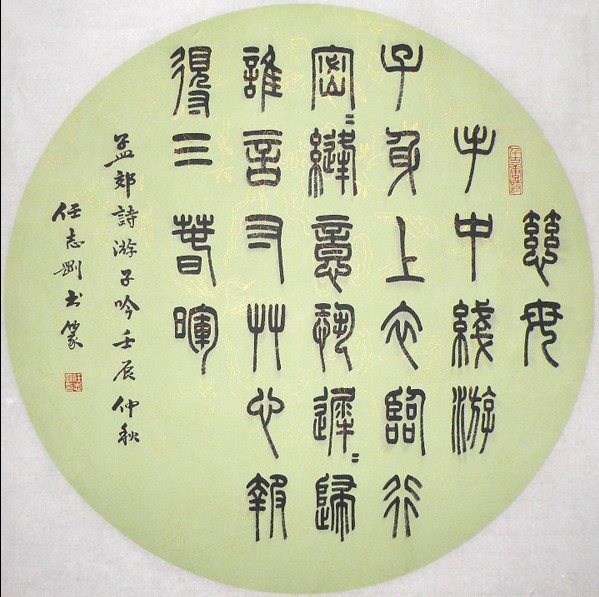 慈母
手中綫游
子身上衣臨行
密〻縫意恐遲〻歸
誰言寸艸心報
得三春暉
孟郊詩游子吟壬辰仲秋
任志剛書篆